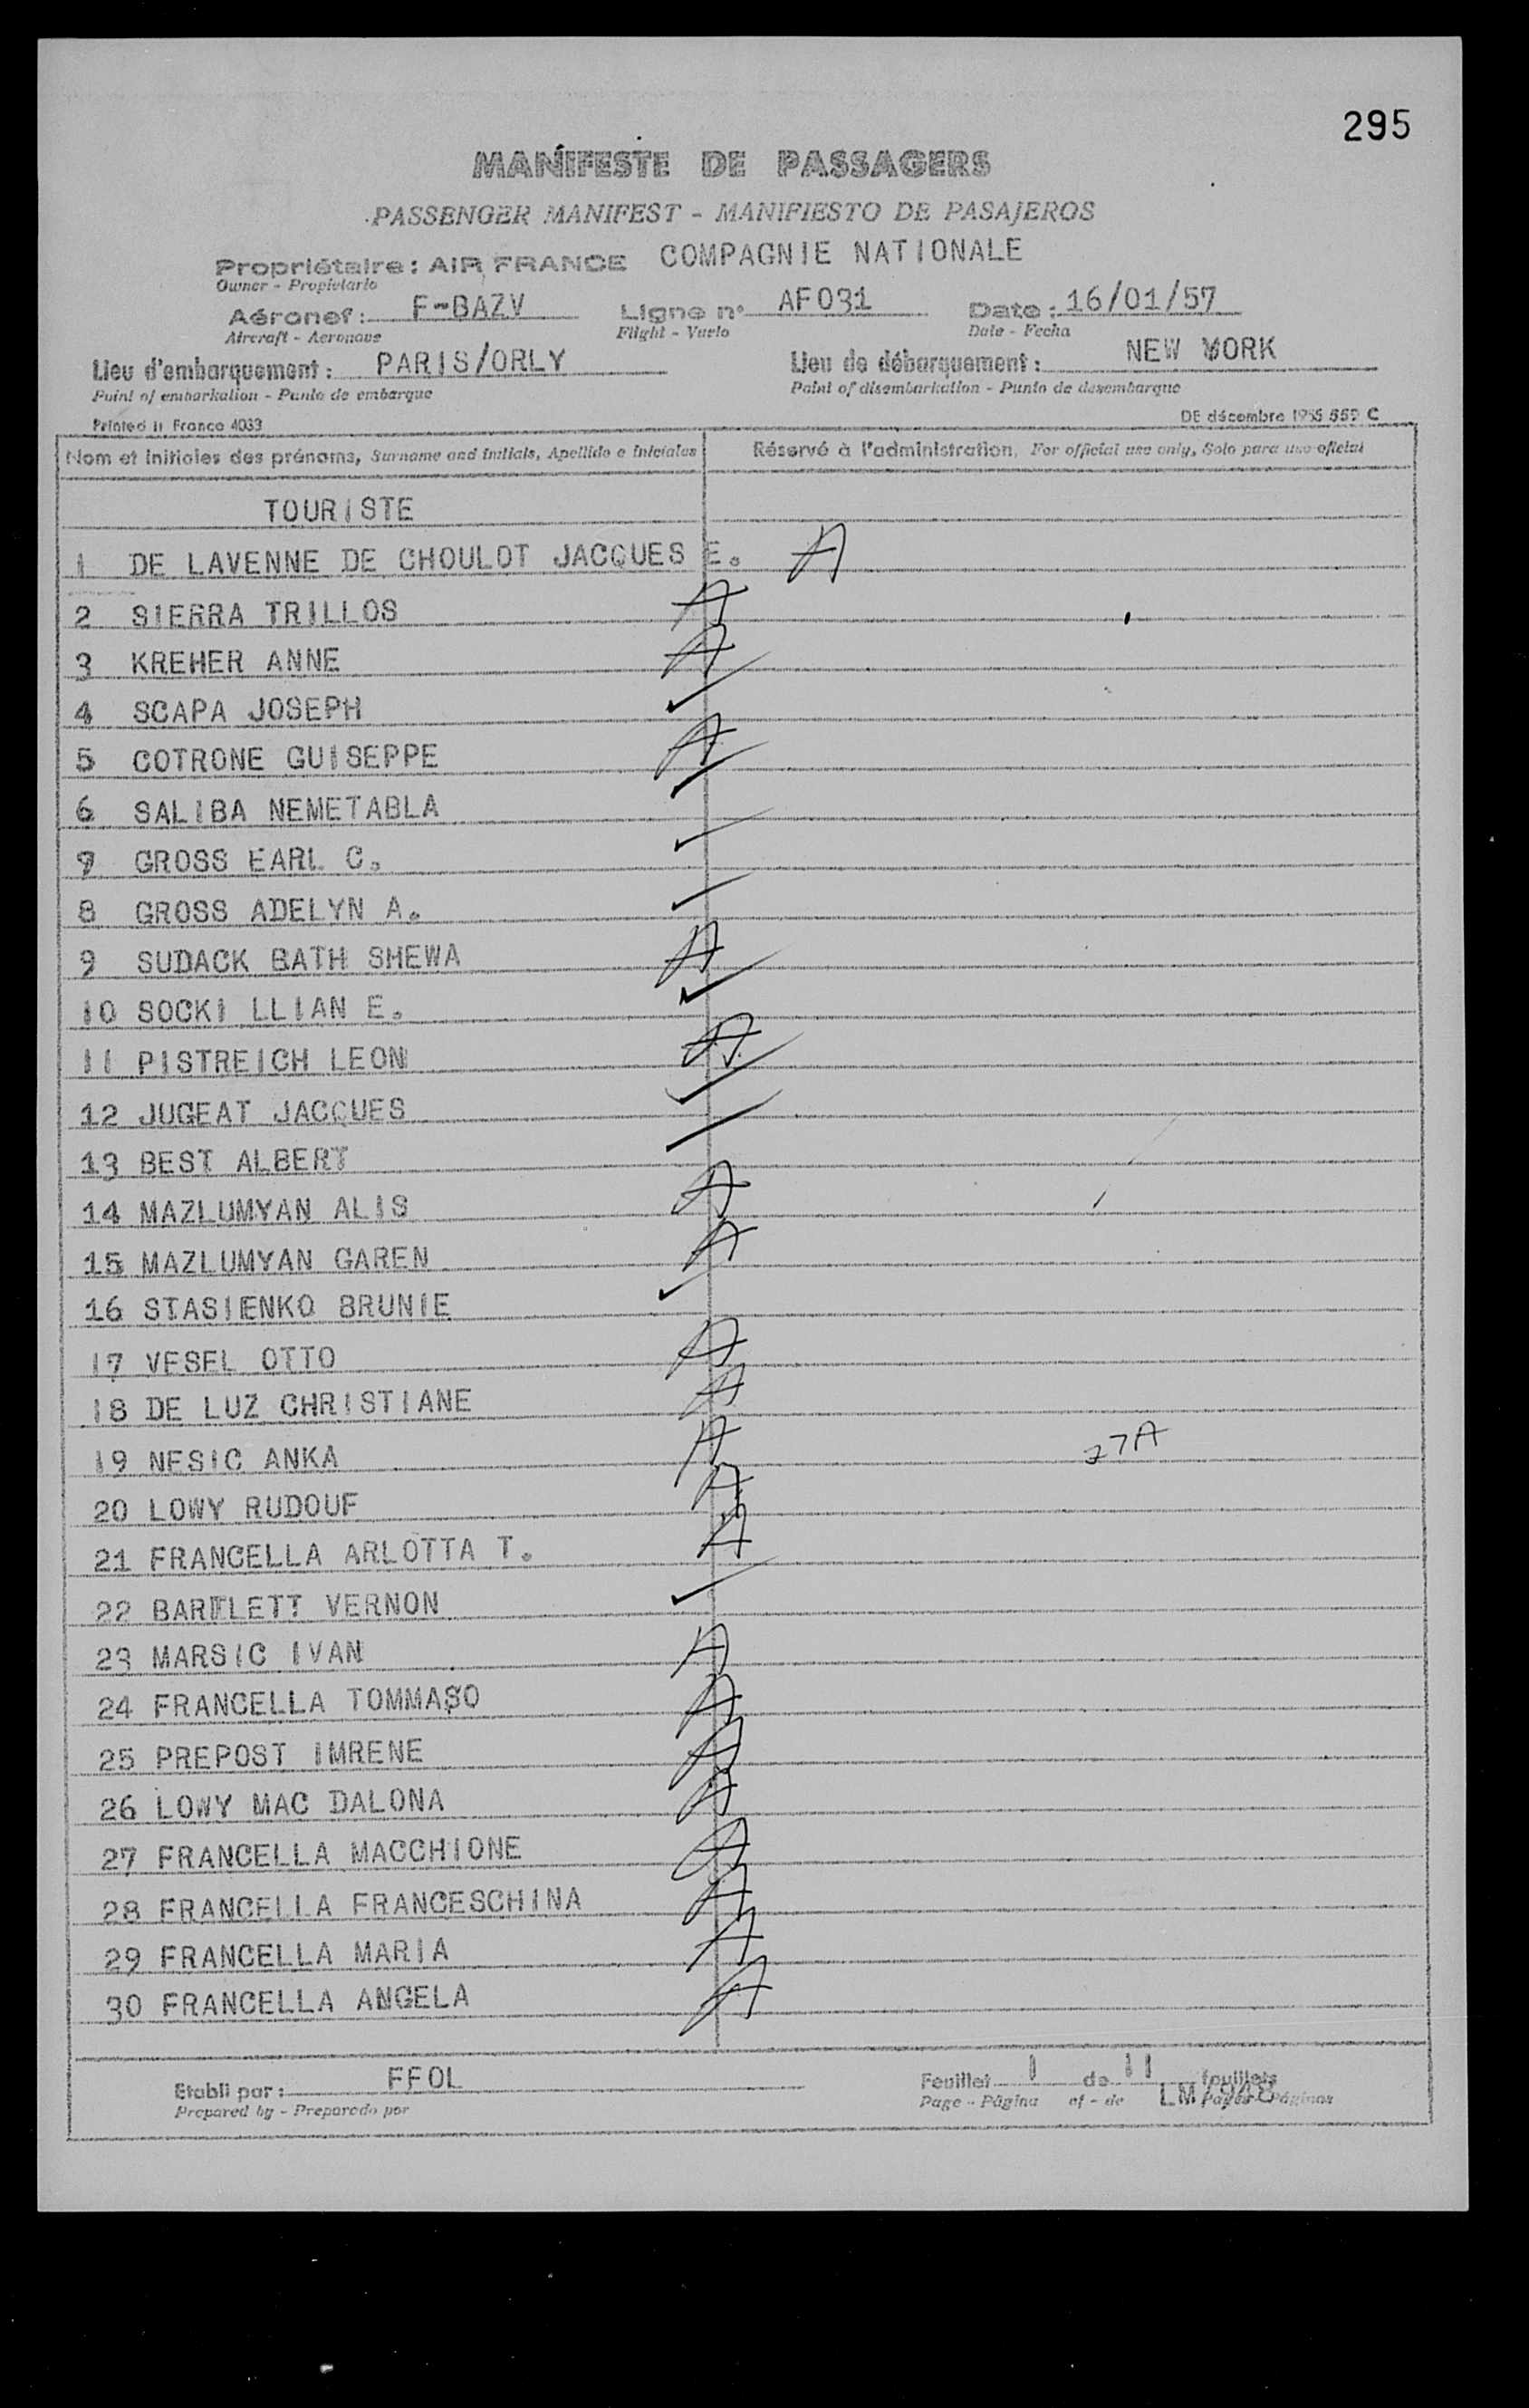 295
MANIFESTE DE PASSAGERS
PASSENGER MANIFEST - MANIFIESTO DE PASAJEROS
Propriétaire : AIR FRANCE COMPAGNIE NATIONALE
Owner - Propietario
Aéronef : F-BAZV Ligne n° AF031 Date : 16/01/57
Aircraft - Aeronave Flight - Vuelo Date - Fecha
Lieu d'embarquement : PARIS/ORLY Lieu de débarquement : NEW YORK
Point of embarkation - Punto de embarque Point of disembarkation - Punto de desembarque
Printed in France 4033 DE décembre 1955 559 C
Nom et initiales des prénoms, Surname and initials, Apellido e iniciales Réservé à l'administration, For official use only, Solo para uso oficial
TOURISTE
1 DE LAVENNE DE CHOULOT JACQUES E. A
2 SIERRA TRILLOS A
3 KREHER ANNE A
4 SCAPA JOSEPH ✓
5 COTRONE GUISEPPE A
6 SALIBA NEMETABLA ✓
7 GROSS EARL C. ✓
8 GROSS ADELYN A. ✓
9 SUDACK BATH SHEWA A
10 SOCKI LLIAN E. ✓
11 PISTREICH LEON A
12 JUGEAT JACQUES ✓
13 BEST ALBERT
14 MAZLUMYAN ALIS A
15 MAZLUMYAN GAREN A
16 STASIENKO BRUNIE ✓
17 VESEL OTTO A
18 DE LUZ CHRISTIANE A
19 NESIC ANKA A 27A
20 LOWY RUDOUF A
21 FRANCELLA ARLOTTA T. A
22 BARTLETT VERNON ✓
23 MARSIC IVAN A
24 FRANCELLA TOMMASO A
25 PREPOST IMRENE A
26 LOWY MAC DALONA A
27 FRANCELLA MACCHIONE A
28 FRANCELLA FRANCESCHINA A
29 FRANCELLA MARIA A
30 FRANCELLA ANGELA A
Etabli par : FFOL Feuillet 1 de 11 feuillets
Prepared by - Preparado por Page - Página of - de LM Pages - Páginas